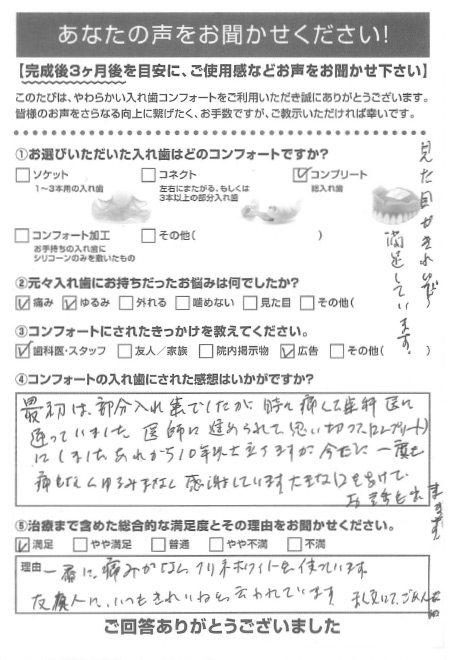 あなたの声をお聞かせください!
【完成後3ヶ月後を目安に、ご使用感などお声をお聞かせ下さい】
このたびは、やわらかい入れ歯コンフォートをご利用いただき誠にありがとうございます。
皆様のお声をさらなる向上に繋げたく、お手数ですが、ご教示いただければ幸いです。
①お選びいただいた入れ歯はどのコンフォートですか?
□ソケット □コネクト ☑コンプリート
1〜3本用の入れ歯 左右にまたがる、もしくは 総入れ歯
3本以上の部分入れ歯
□コンフォート加工 □その他( )
お手持ちの入れ歯に
シリコーンのみを敷いたもの
見た目がきれいで
満足しています。
②元々入れ歯にお持ちだったお悩みは何でしたか?
☑痛み ☑ゆるみ □外れる □噛めない □見た目 □その他( )
③コンフォートにされたきっかけを教えてください。
☑歯科医・スタッフ □友人/家族 □院内掲示物 ☑広告 □その他( )
④コンフォートの入れ歯にされた感想はいかがですか?
最初は、部分入れ歯でしたが、時々痛くて歯科医に
通っていました 医師に進められて思い切って(コンプリート)
にしました あれから10年以上立ちますが、今だに一度も
痛もなくゆるみもなく 感謝しています 大きな口をあけて
お話も出
きます。
⑤治療まで含めた総合的な満足度とその理由をお聞かせください。
☑満足 □やや満足 □普通 □やや不満 □不満
理由 一番に、痛みがなく クリネホワイトを使っています。
友人に、いつもきれいねと云われています
ご回答ありがとうございました